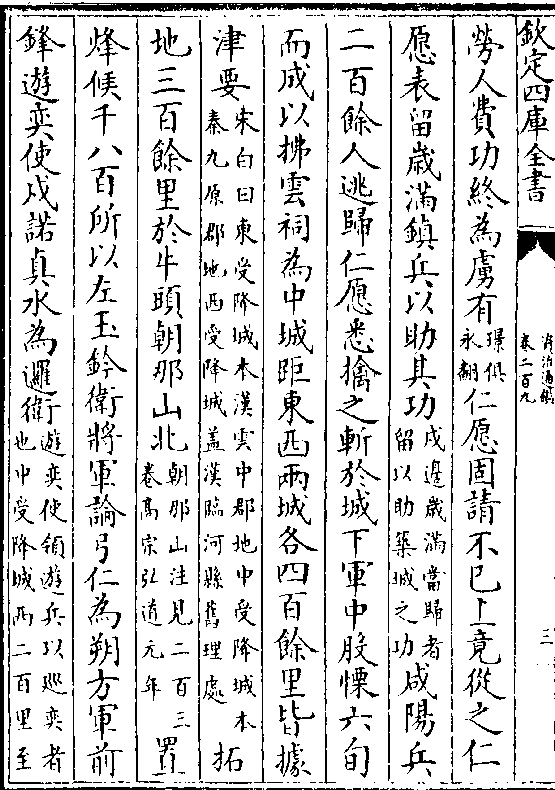 欽定四庫全書
資治通鑑
卷二百九
三
勞人費功終為虜有璟俱永翻仁愿固請不已上竟從之仁
愿表留歲滿鎮兵以助其功戍邊歲滿當歸者留以助築城之功咸陽兵
二百餘人逃歸仁愿悉擒之斬於城下軍中股慄六旬
而成以拂雲祠為中城距東西兩城各四百餘里皆據
津要宋白曰東受降城本漢雲中郡地中受降城本秦九原郡地西受降城蓋漢臨河縣舊理處拓
地三百餘里於牛頭朝那山北朝那山注見二百三卷高宗弘道元年置
烽候千八百所以左玉鈐衛將軍論弓仁為朔方軍前
鋒遊奕使戍諾真水為邏衛遊奕使領遊兵以巡奕者也中受降城西二百里至